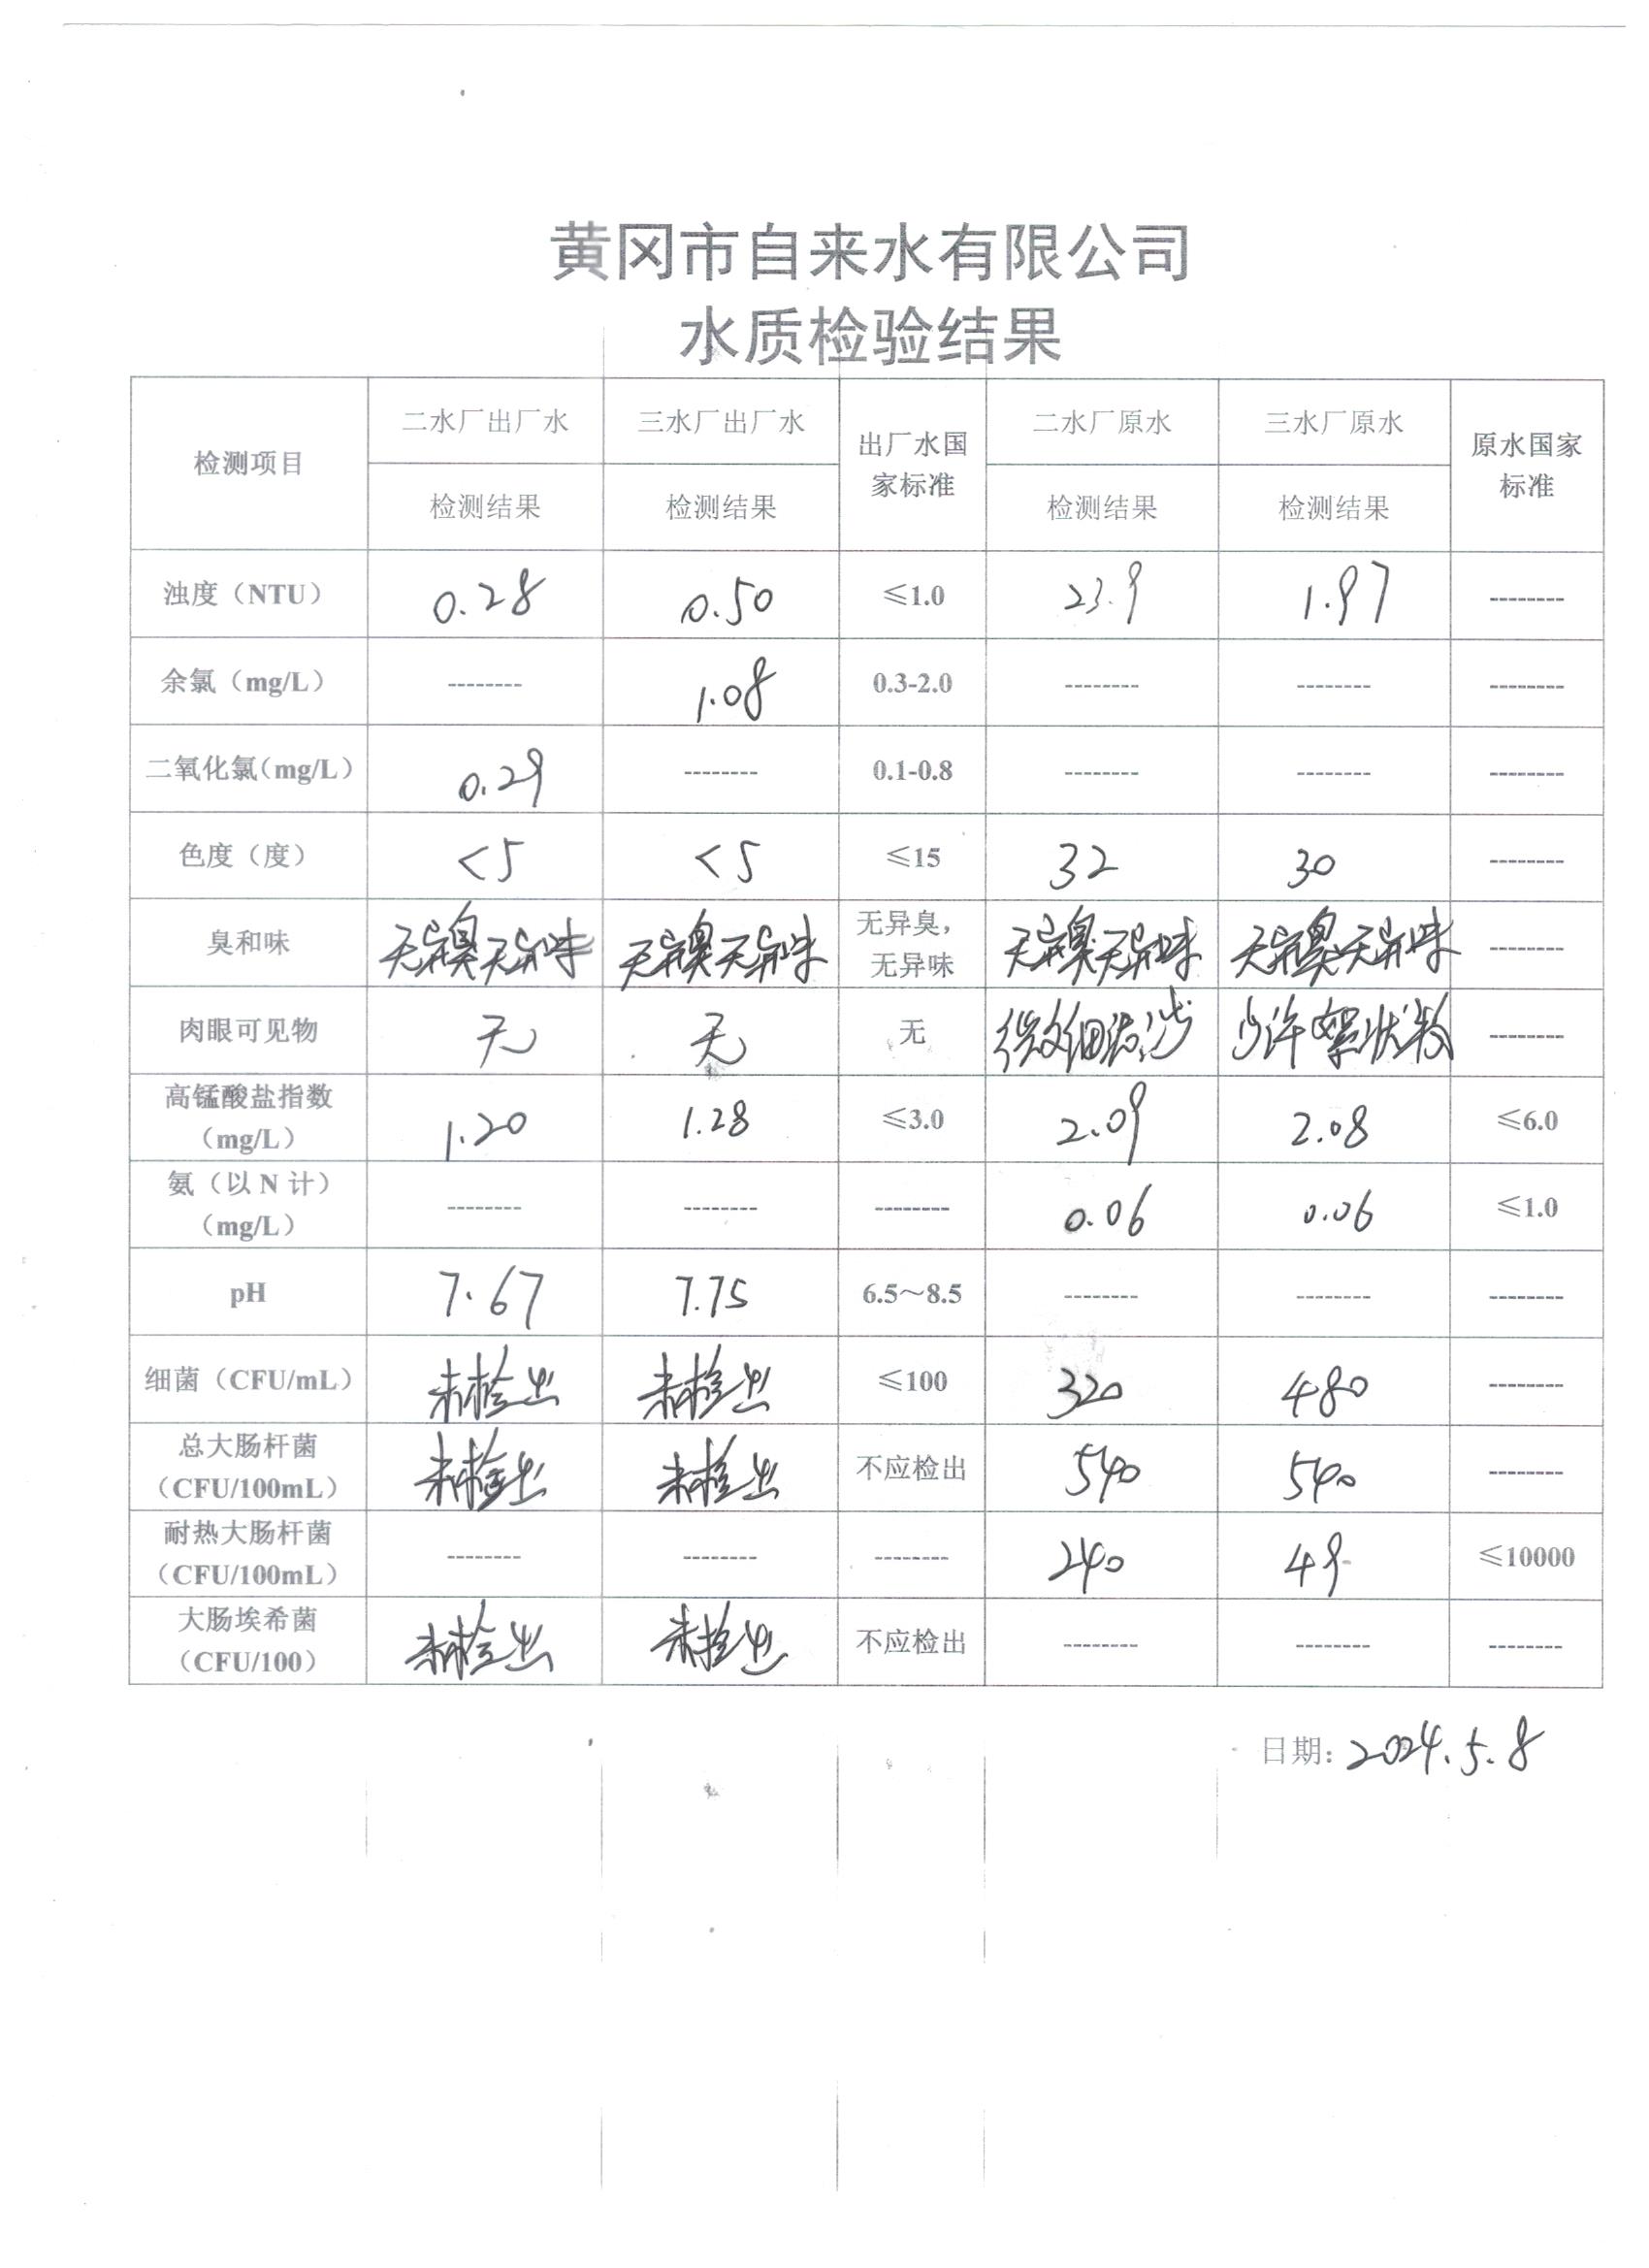 黄冈市自来水有限公司
水质检验结果
检测项目 二水厂出厂水 三水厂出厂水 出厂水国家标准 二水厂原水 三水厂原水 原水国家标准
检测结果 检测结果 检测结果 检测结果
浊度（NTU） 0.28 0.50 ≤1.0 23.9 1.97 --------
余氯（mg/L） -------- 1.08 0.3-2.0 -------- -------- --------
二氧化氯（mg/L） 0.29 -------- 0.1-0.8 -------- -------- --------
色度（度） <5 <5 ≤15 32 30 --------
臭和味 无异臭无异味 无异臭无异味 无异臭，无异味 无异臭无异味 无异臭无异味 --------
肉眼可见物 无 无 无 微细泥沙 少许絮状物 --------
高锰酸盐指数（mg/L） 1.20 1.28 ≤3.0 2.09 2.08 ≤6.0
氨（以 N 计）（mg/L） -------- -------- -------- 0.06 0.06 ≤1.0
pH 7.67 7.75 6.5～8.5 -------- -------- --------
细菌（CFU/mL） 未检出 未检出 ≤100 320 480 --------
总大肠杆菌（CFU/100mL） 未检出 未检出 不应检出 540 540 --------
耐热大肠杆菌（CFU/100mL） -------- -------- -------- 240 49 ≤10000
大肠埃希菌（CFU/100） 未检出 未检出 不应检出 -------- -------- --------
日期: 2024.5.8